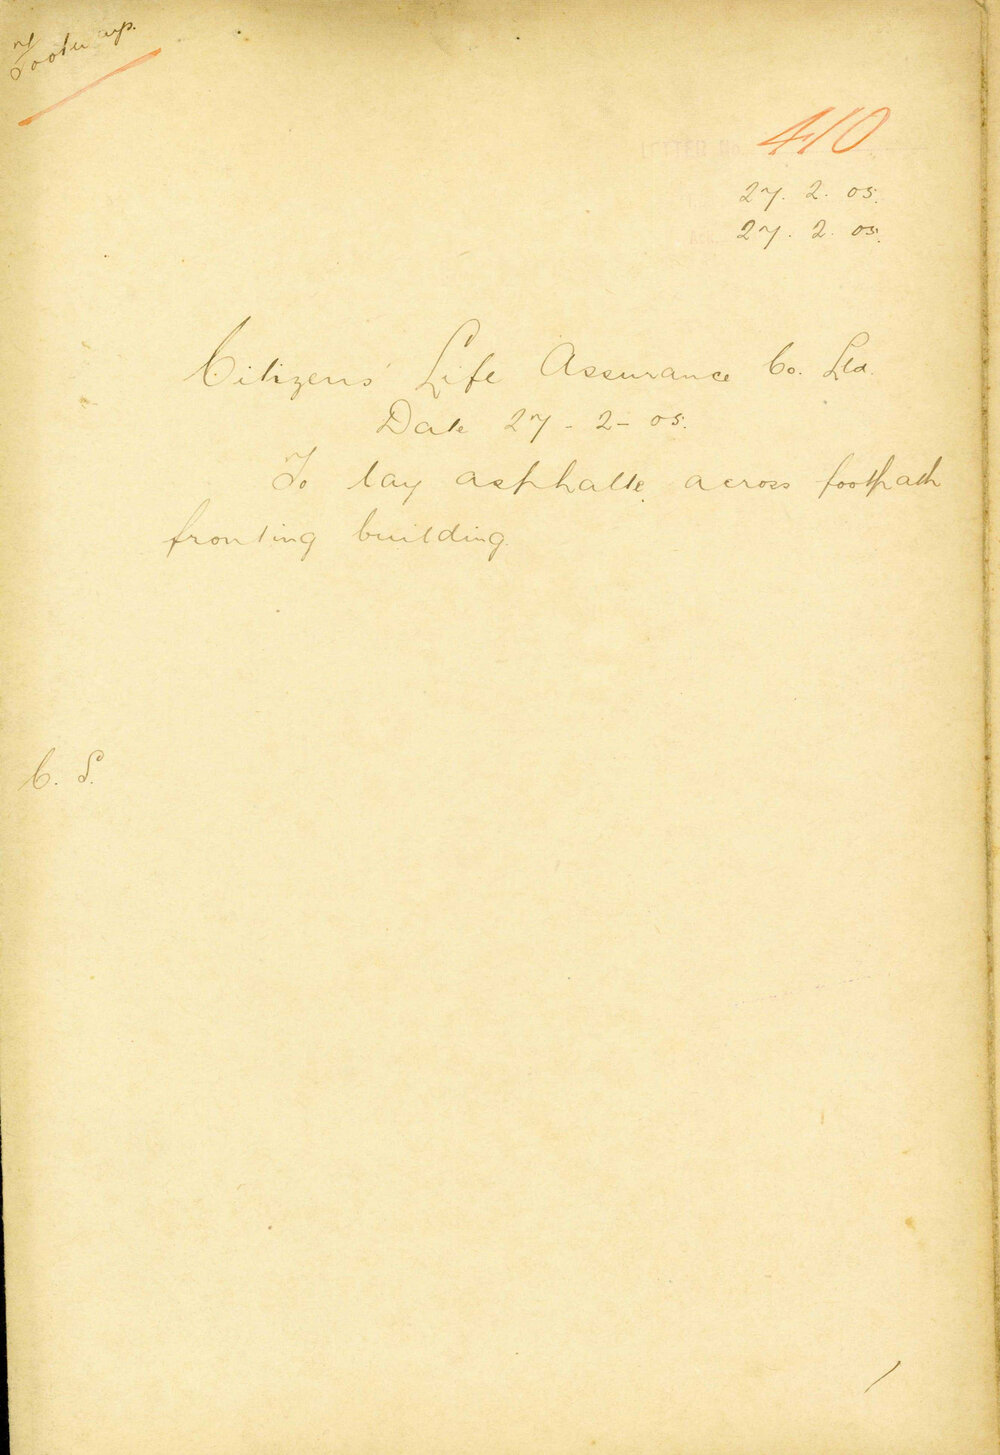 410
27. 2. 05.
27. 2. 05.
Citizens' Life Assurance Co. Ltd.
Date 27 - 2 - 05.
To lay asphalte across footpath
fronting building
C. S.